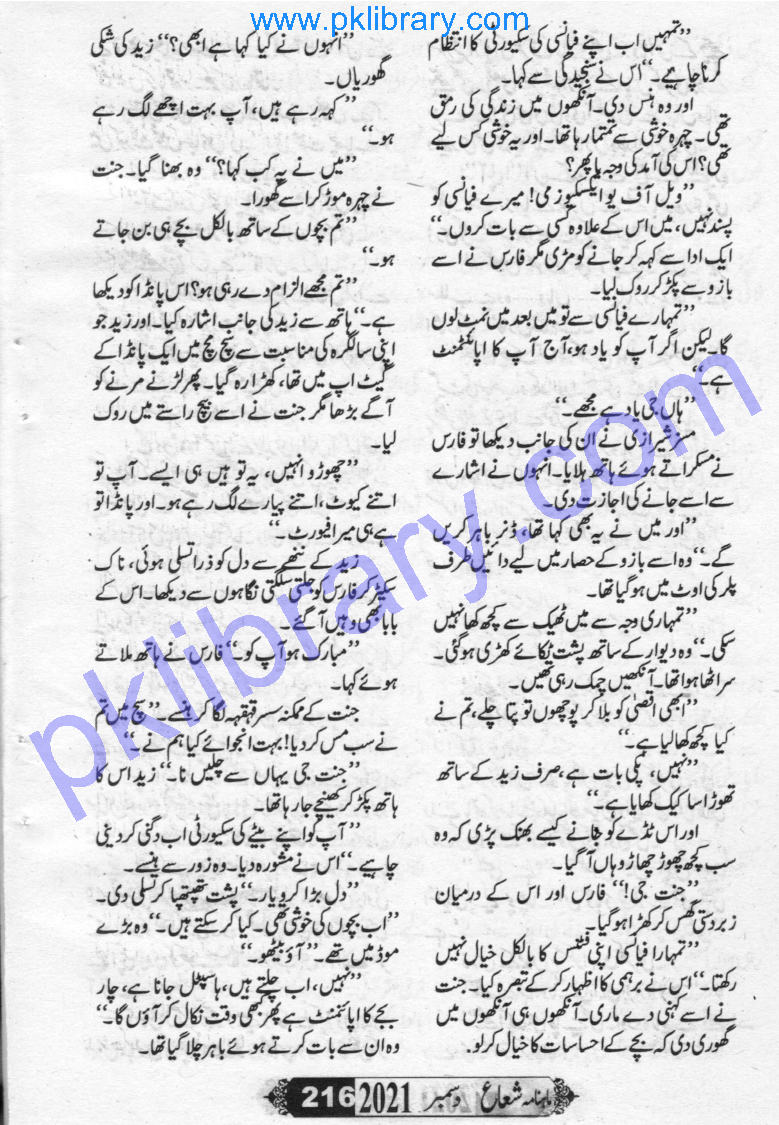 www.pklibrary.com
”تمہیں اب اپنے فیانسی کی سکیورٹی کا انتظام
کرنا چاہیے۔“ اس نے سنجیدگی سے کہا۔
اور وہ ہنس دی۔ آنکھوں میں زندگی کی رمق
تھی۔ چہرہ خوشی سے تمتما رہا تھا۔ اور یہ خوشی کس لیے
تھی؟ اس کی آمد کی وجہ یا پھر؟
”ویل آف یو ایکسکیوزمی! میرے فیانسی کو
پسند نہیں، میں اس کے علاوہ کسی سے بات کروں۔“
ایک ادا سے کہہ کر جانے کو مڑی مگر فارس نے اسے
بازو سے پکڑ کر روک لیا۔
”تمہارے فیانسی سے تو میں بعد میں نمٹ لوں
گا۔ لیکن اگر آپ کو یاد ہو، آج آپ کا اپائنٹمنٹ
ہے۔“
”ہاں جی یاد ہے مجھے۔“
مسز شیرازی نے ان کی جانب دیکھا تو فارس
نے مسکراتے ہوئے ہاتھ ہلایا۔ انہوں نے اشارے
سے اسے جانے کی اجازت دی۔
”اور میں نے یہ بھی کہا تھا، ڈنر باہر کریں
گے۔“ وہ اسے بازو کے حصار میں لیے دائیں طرف
پلر کی اوٹ میں ہو گیا تھا۔
”تمہاری وجہ سے میں ٹھیک سے کچھ کھا نہیں
سکی۔“ وہ دیوار کے ساتھ پشت ٹکائے کھڑی ہو گئی۔
سر اٹھا ہوا تھا۔ آنکھیں چمک رہی تھیں۔
”ابھی اقصیٰ کو بلا کر پوچھوں تو پتا چلے، تم نے
کیا کچھ کھا لیا ہے۔“
”نہیں، پکی بات ہے، صرف زید کے ساتھ
تھوڑا سا کیک کھایا ہے۔“
اور اس ٹڈے کو جانے کیسے بھنک پڑی کہ وہ
سب کچھ چھوڑ چھاڑ وہاں آ گیا۔
”جنت جی!“ فارس اور اس کے درمیان
زبردستی گھس کر کھڑا ہو گیا۔
”تمہارا فیانسی اپنی فٹنس کا بالکل خیال نہیں
رکھتا۔“ اس نے برہمی کا اظہار کر کے تبصرہ کیا۔ جنت
نے اسے کہنی دے ماری۔ آنکھوں ہی آنکھوں میں
گھوری دی کہ بچے کے احساسات کا خیال کر لو۔
”انہوں نے کیا کہا ہے ابھی؟“ زید کی شکی
گھوریاں۔
”کہہ رہے ہیں، آپ بہت اچھے لگ رہے
ہو۔“
”میں نے یہ کب کہا؟“ وہ بھنا گیا۔ جنت
نے چہرہ موڑ کر اسے گھورا۔
”تم بچوں کے ساتھ بالکل بچے ہی بن جاتے
ہو۔“
”تم مجھے الزام دے رہی ہو؟ اس پانڈا کو دیکھا
ہے۔“ ہاتھ سے زید کی جانب اشارہ کیا۔ اور زید جو
اپنی سالگرہ کی مناسبت سے سچ مچ میں ایک پانڈا کے
گیٹ اپ میں تھا، کھڑا رہ گیا۔ پھر لڑنے مرنے کو
آگے بڑھا مگر جنت نے اسے بیچ راستے میں روک
لیا۔
”چھوڑو انہیں، یہ تو ہیں ہی ایسے۔ آپ تو
اتنے کیوٹ، اتنے پیارے لگ رہے ہو۔ اور پانڈا تو
ہے ہی میرا فیورٹ۔“
زید کے ننھے سے دل کو ذرا تسلی ہوئی، ناک
سکیڑ کر فارس کو جلتی سلگتی نگاہوں سے دیکھا۔ اس کے
بابا بھی وہیں آ گئے۔
”مبارک ہو آپ کو“ فارس نے ہاتھ ملاتے
ہوئے کہا۔
جنت کے ممکنہ سسر قہقہہ لگا کر ہنسے۔ ”سچ میں تم
نے سب مس کر دیا! بہت انجوائے کیا ہم نے۔“
”جنت جی یہاں سے چلیں نا۔“ زید اس کا
ہاتھ پکڑ کر کھینچے جا رہا تھا۔
”آپ کو اپنے بیٹے کی سکیورٹی اب دگنی کر دینی
چاہیے۔“ اس نے مشورہ دیا۔ وہ زور سے ہنسے۔
”دل بڑا کرو یار۔“ پشت تھپتھپا کر تسلی دی۔
”اب بچوں کی خوشی تھی۔ کیا کر سکتے ہیں۔“ وہ بڑے
موڈ میں تھے۔ ”آؤ بیٹھو۔“
”نہیں، اب چلتے ہیں، ہاسپٹل جانا ہے، چار
بجے کا اپائنمنٹ ہے پھر بھی وقت نکال کر آؤں گا۔“
وہ ان سے بات کرتے ہوئے باہر چلا گیا تھا۔
pklibrary.com
ماہنامہ شعاع دسمبر 2021 216